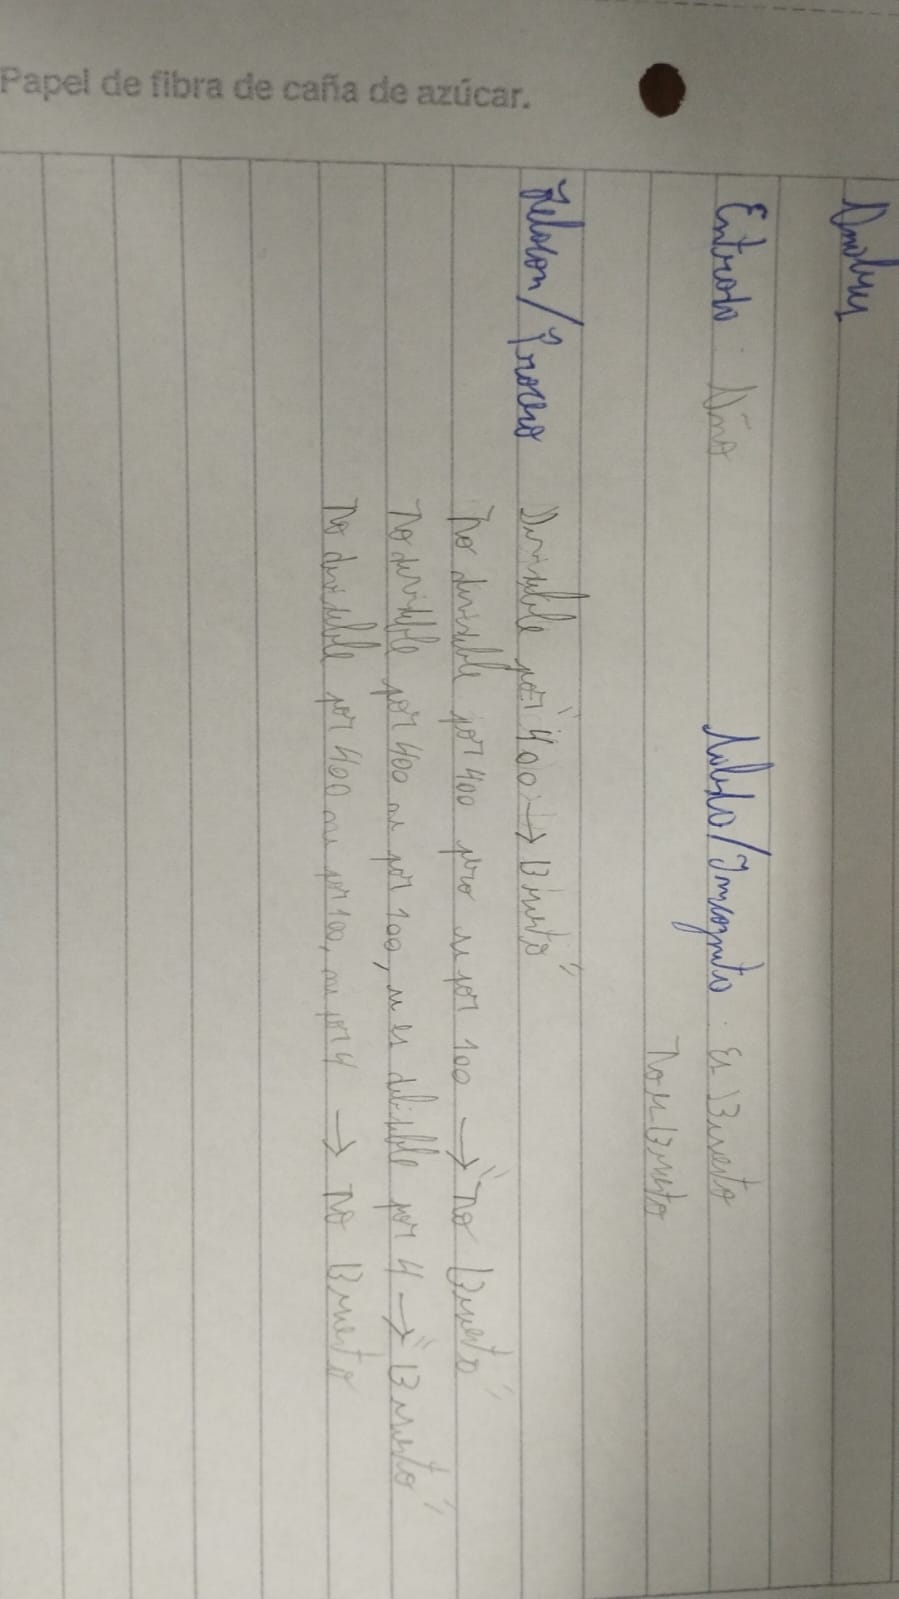 Analisis
Entrada: Año Salida/Incognita: Es Bisiesto
No es Bisiesto
Relacion/Proceso Divisible por "400 → Bisiesto"
No divisible por 400 pero si por 100 → "No Bisiesto"
No divisible por 400 ni por 100, si es divisible por 4 → "Bisiesto"
No divisible por 400 ni por 100, ni por 4 → No Bisiesto
Papel de fibra de caña de azúcar.